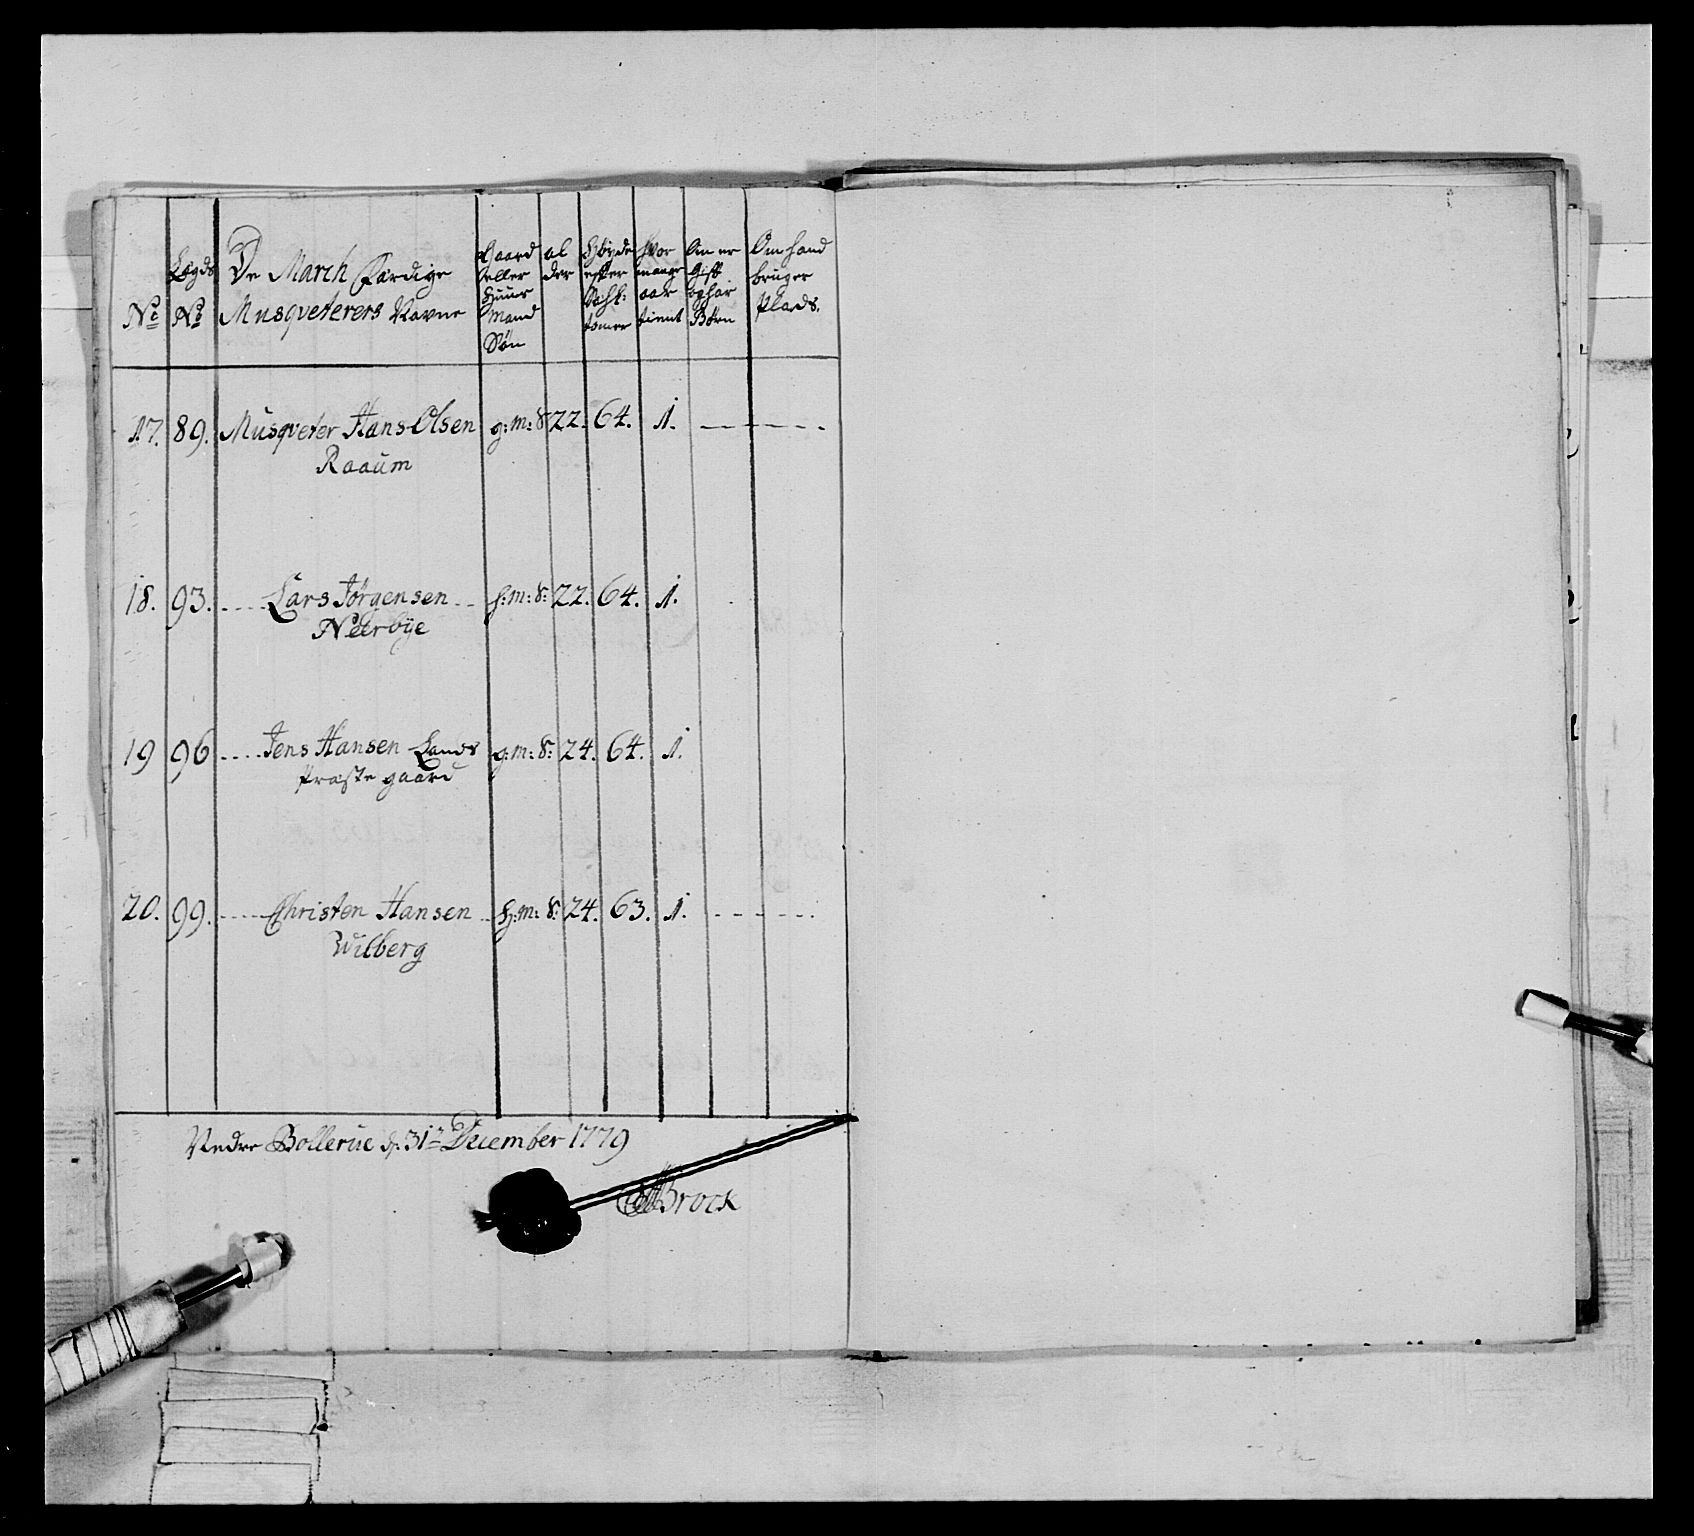 No
Lægds No
De March Færdige Musqveterers Navne
Gaard eller Huus Mand Søn
al der
Høyde efter Sahl: tomer
Hvor mange aar tient
Om er Gift og har Børn
Om hand bruger Plads.
17. 89. Musqveter Hans Olsen g: m: S 22. 64. 1.
Raaum
18. 93. Lars Jørgensen h: m: S: 22. 64. 1.
Neerbye
19 96 Jens Hansen Lands g: m: S: 24. 64. 1.
Præste gaard
20. 99. Christen Hansen h: m: S: 24. 63. 1.
Wilberg
Nedre Bollerue d. 31te December 1779
Brock